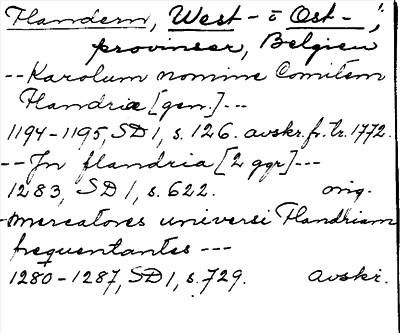 Flandern, West- o Ost-,
provinser, Belgien
--Karolum nomine Comitem
Flandrie [gen.]---
1194-1195, SD 1, s. 126. avskr. fr. tr. 1772.
--In flandria [2 ggr]---
1283, SD 1, s. 622. orig.
-mercatores universi Flandriam
frequentantes ---
1280-1287, SD 1, s. 729. avskr.